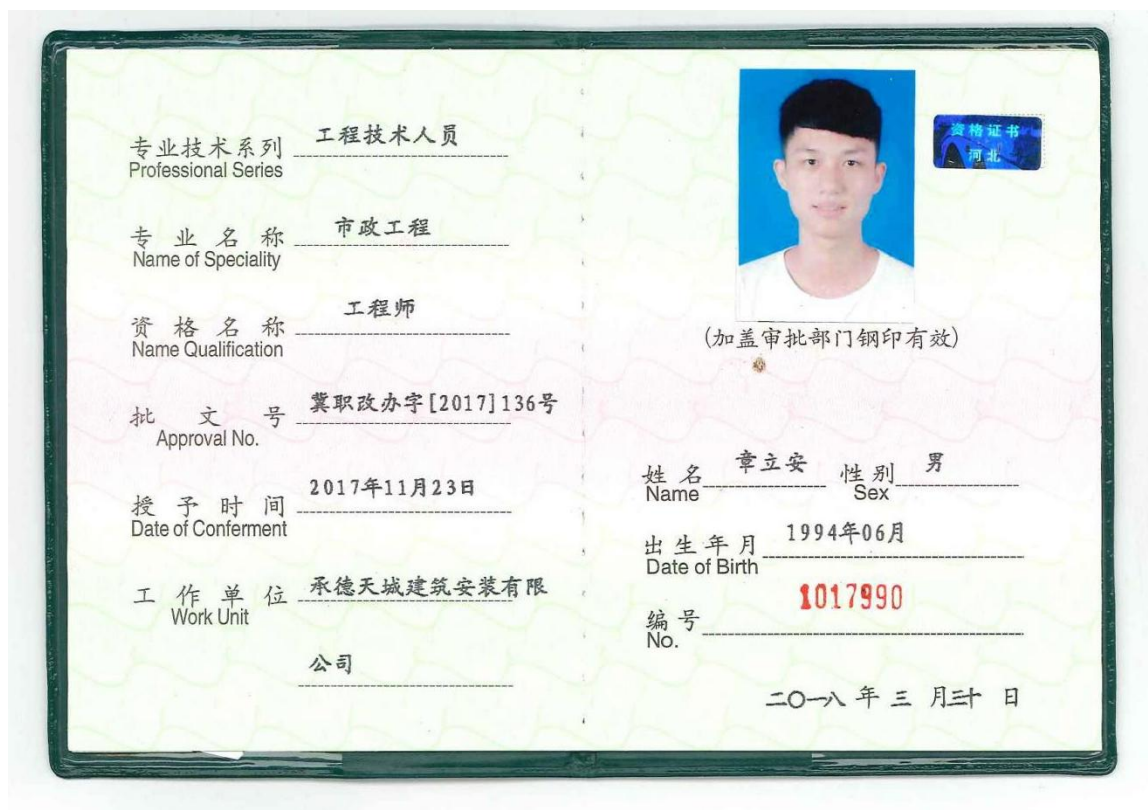 专业技术系列 工程技术人员
Professional Series
专业名称 市政工程
Name of Speciality
资格名称 工程师
Name Qualification
批文号 冀职改办字[2017]136号
Approval No.
授予时间 2017年11月23日
Date of Conferment
工作单位 承德天城建筑安装有限
Work Unit
公司
资格证书
河北
(加盖审批部门钢印有效)
姓名 章立安 性别 男
Name Sex
出生年月 1994年06月
Date of Birth
编号 1017990
No.
二〇一八年三月三十日